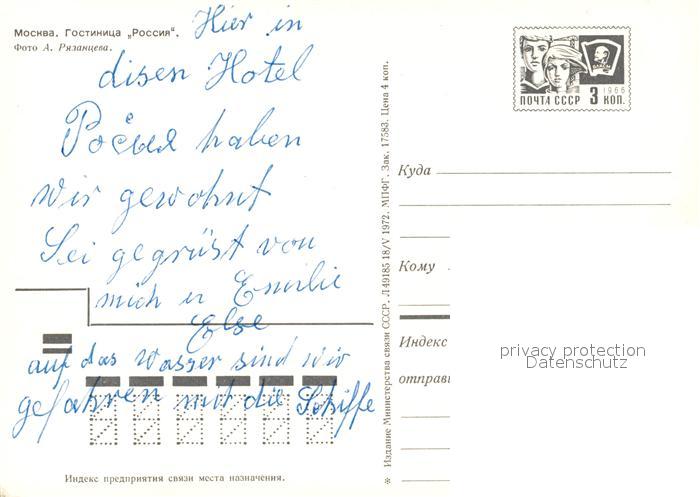 Москва. Гостиница „Россия".
Фото А. Рязанцева.
Hier in
disen Hotel
Росия haben
wir gewohnt
Sei gegrüst von
mich u Emilie
Else
auf das Wasser sind wir
gefahren mit die Schiffe
Индекс предприятия связи места назначения.
✻ Издание Министерства связи СССР. Л49185 18/V 1972. МПФГ. Зак. 17583. Цена 4 коп.
ПОЧТА СССР 3 КОП.
1966
ВЛКСМ
Куда
Кому
Индекс
отправи
privacy protection
Datenschutz